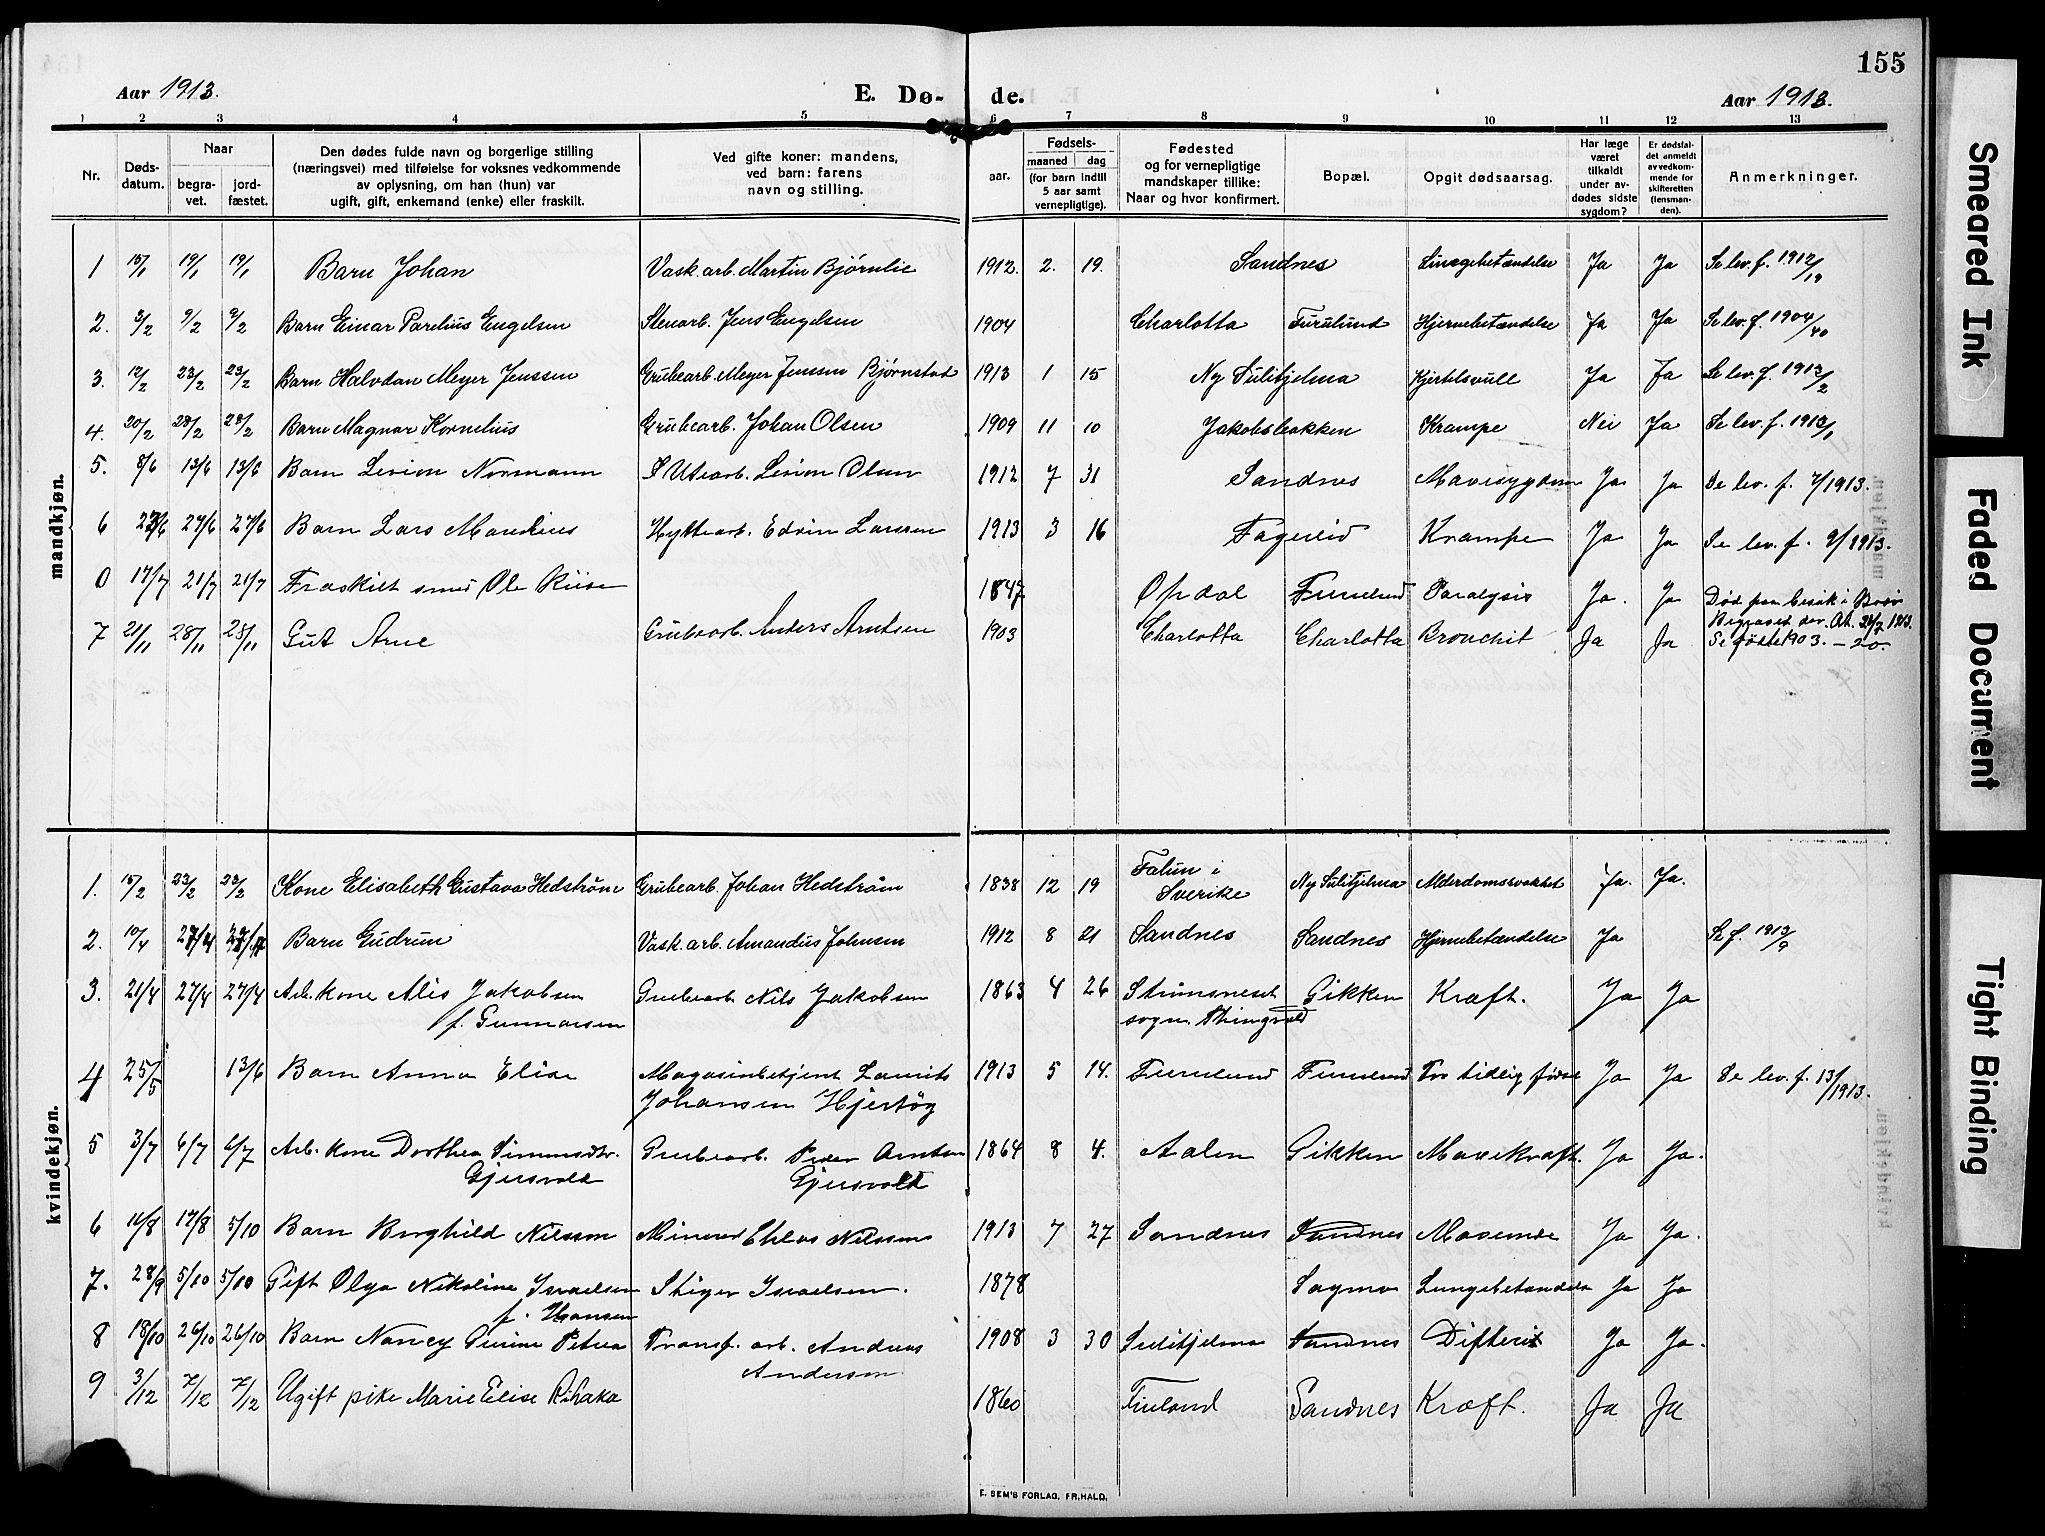 155
Aar 1913.
E. Dø- de.
Aar 1913.
1 2 3 4 5 6 7 8 9 10 11 12 13
Nr.
Døds-
datum.
Naar
begra-
vet.
jord-
fæstet.
Den dødes fulde navn og borgerlige stilling
(næringsvei) med tilføielse for voksnes vedkommende
av oplysning, om han (hun) var
ugift, gift, enkemand (enke) eller fraskilt.
Ved gifte koner: mandens,
ved barn: farens
navn og stilling.
aar.
Fødsels-
maaned dag
(for barn indtil
5 aar samt
vernepligtige).
Fødested
og for vernepligtige
mandskaper tillike:
Naar og hvor konfirmert.
Bopæl.
Opgit dødsaarsag.
Har læge
været
tilkaldt
under av-
dødes sidste
sygdom?
Er dødsfal-
det anmeldt
av vedkom-
mende for
skifteretten
(lensman-
den).
Anmerkninger.
mandkjøn.
1 15/1 19/1 19/1 Barn Johan Vask.arb. Martin Bjørnlie 1912. 2. 19. Sandnes Lungebetændelse Ja Ja Se lev. f. 1912/19
2. 3/2 9/2 9/2 Barn Einar Parelius Engelsen Stenarb. Jens Engelsen 1904 Charlotta Furulund Hjernebetændelse Ja Ja Se lev. f. 1904/40
3. 12/2 23/2 23/2 Barn Halvdan Meyer Jenssen Grubearb. Meyer Jenssen Bjørnstad 1913 1 15 Ny Sulitjelma Kjertelsvull Ja Ja Se lev. f. 1913/2
4. 20/2 28/2 28/2 Barn Magnar Kornelius Grubearb. Johan Olsen 1909 11 10 Jakobsbakken Krampe Nei Ja Se lev. f. 1913/1
5. 8/6 13/6 13/6 Barn Normann Olsen 1912 7 31 Sandnes Mavesygdom Ja Ja Se lev. f. 7/1913.
6 27/6 27/6 Barn Lars Mandius Hyttearb. Edvin Larsen 1913 3 16 Fagerlid Krampe Ja Ja Se lev. f. 9/1913.
0 17/7 21/7 21/7 Fraskilt smed Ole Riise 1847 Opdal Furulund Paralysis Ja. Ja Død paa besøk i
Begravet der. 1913.
7 21/11 28/11 28/11 Gut Arne Grubearb. Anders Arntsen 1903 Charlotta Charlotta Bronchit Ja Ja Se fødte 1903. – 20.
kvindekjøn.
1. 15/2 23/2 23/2 Kone Elisabeth Gustava Hedstrøm Grubearb. Johan Hedstrøm 1838 12 19 Falun i
Sverike Ny Sulitjelma Alderdomssvakhet Ja. Ja.
2. 10/4 27/4 Barn Gudrun Vask.arb. Amandus Johnsen 1912 8 21 Sandnes Sandnes Hjernebetændelse Ja Se f. 1913/9
3. 21/4 27/4 27/4 Arb.kone Alis Jakobsen
f. Gunnarsen Grubearb. Nils Jakobsen 1863 4 26 Strømsneset
sogn, Gikken Kræft. Ja Ja
4 25/5 13/6 Barn Anna Elise Magasinbetjent Laurits
Johansen Hjertøy 1913 5 14. Furulund Furulund For tidlig født Ja Ja Se lev. f. 13/1913.
5 3/7 6/7 6/7 Arb. kone Dorthea Simonsdtr.
Gjersvold Grubearb. Peder Anton
Gjersvold 1864 8 4. Aalen Gikken Mavekræft. Ja Ja.
6 11/8 17/8 5/10 Barn Borghild Nilsson Minerer Nilsson 1913 7 27 Sandnes Sandnes Maveonde Ja Ja.
7. 28/9 5/10 5/10 Gift Olga Nikoline Israelsen
f. Hansen Stiger Israelsen. 1878 Sagmo Lungebetændelse Ja Ja
8 18/10 26/10 26/10 Barn Nancy Petrea Transp. arb. Andreas
Andersen 1908 3 30 Sulitjelma Sandnes Difterit Ja Ja.
9 3/12 7/12 7/12 Ugift pike Marie Elise Rihaka 1860 Finland Sandnes Kræft. Ja Ja
E. SEM'S FORLAG, FR.HALD.
Smeared Ink
Faded Document
Tight Binding